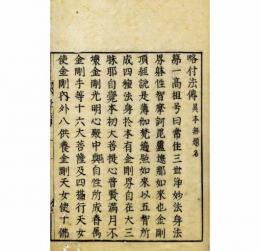 略付法傳 異本無題名
第一高祖号曰常住三世淨妙法身法
界躰性智摩訶毘盧遮那如來也金剛
頂經說是薄伽梵遍照如來以五智所
成四種法身於本有金剛界自在大三
昧耶自覺本初大菩提心普賢滿月不
壞金剛光明心殿中與自性所成眷屬
金剛手等十六大菩薩及四攝行天女
使金剛內外八供養金剛天女使千佛